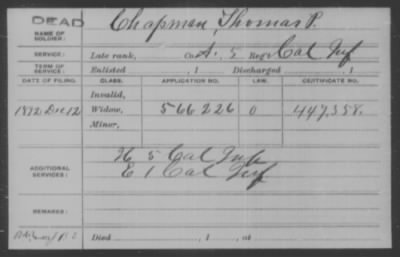 DEAD
NAME OF SOLDIER:
Chapman, Thomas P.
SERVICE:
Late rank, Co. A, 5 Reg't Cal Inf
TERM OF SERVICE:
Enlisted , 1 Discharged , 1
DATE OF FILING. CLASS. APPLICATION NO. LAW. CERTIFICATE NO.
Invalid,
1892 Dec 12 Widow, 566226 0 447,358.
Minor,
ADDITIONAL SERVICES:
H 5 Cal Inf
E 1 Cal Inf
REMARKS:
Died , 1 , at